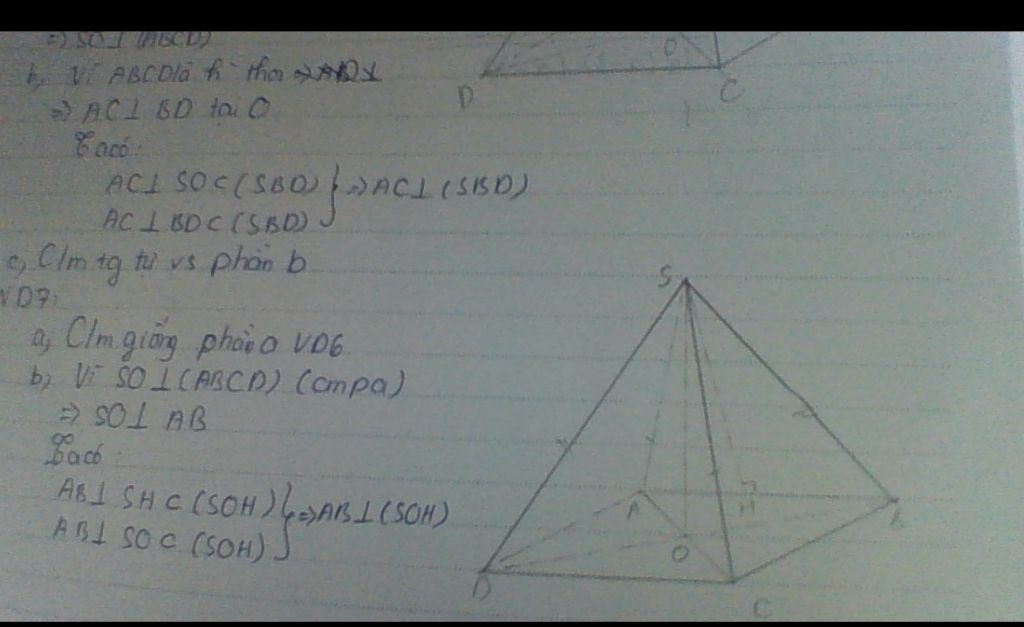 => SO⊥(ABCD)
b, Vì ABCD là h thoi => ABD⊥
=> AC⊥ BD tại O
Ta có:
AC⊥ SO⊂(SBD) } => AC⊥(SBD)
AC⊥BD⊂(SBD)
c, C/m tg tự vs phần b
VD7:
a, C/m giống phần a VD6
b, Vì SO⊥(ABCD) (cmpa)
=> SO⊥ AB
Ta có:
AB⊥ SH⊂(SOH) } => AB⊥(SOH)
AB⊥ SO⊂(SOH)
O
D
C
S
A
H
B
O
D
C